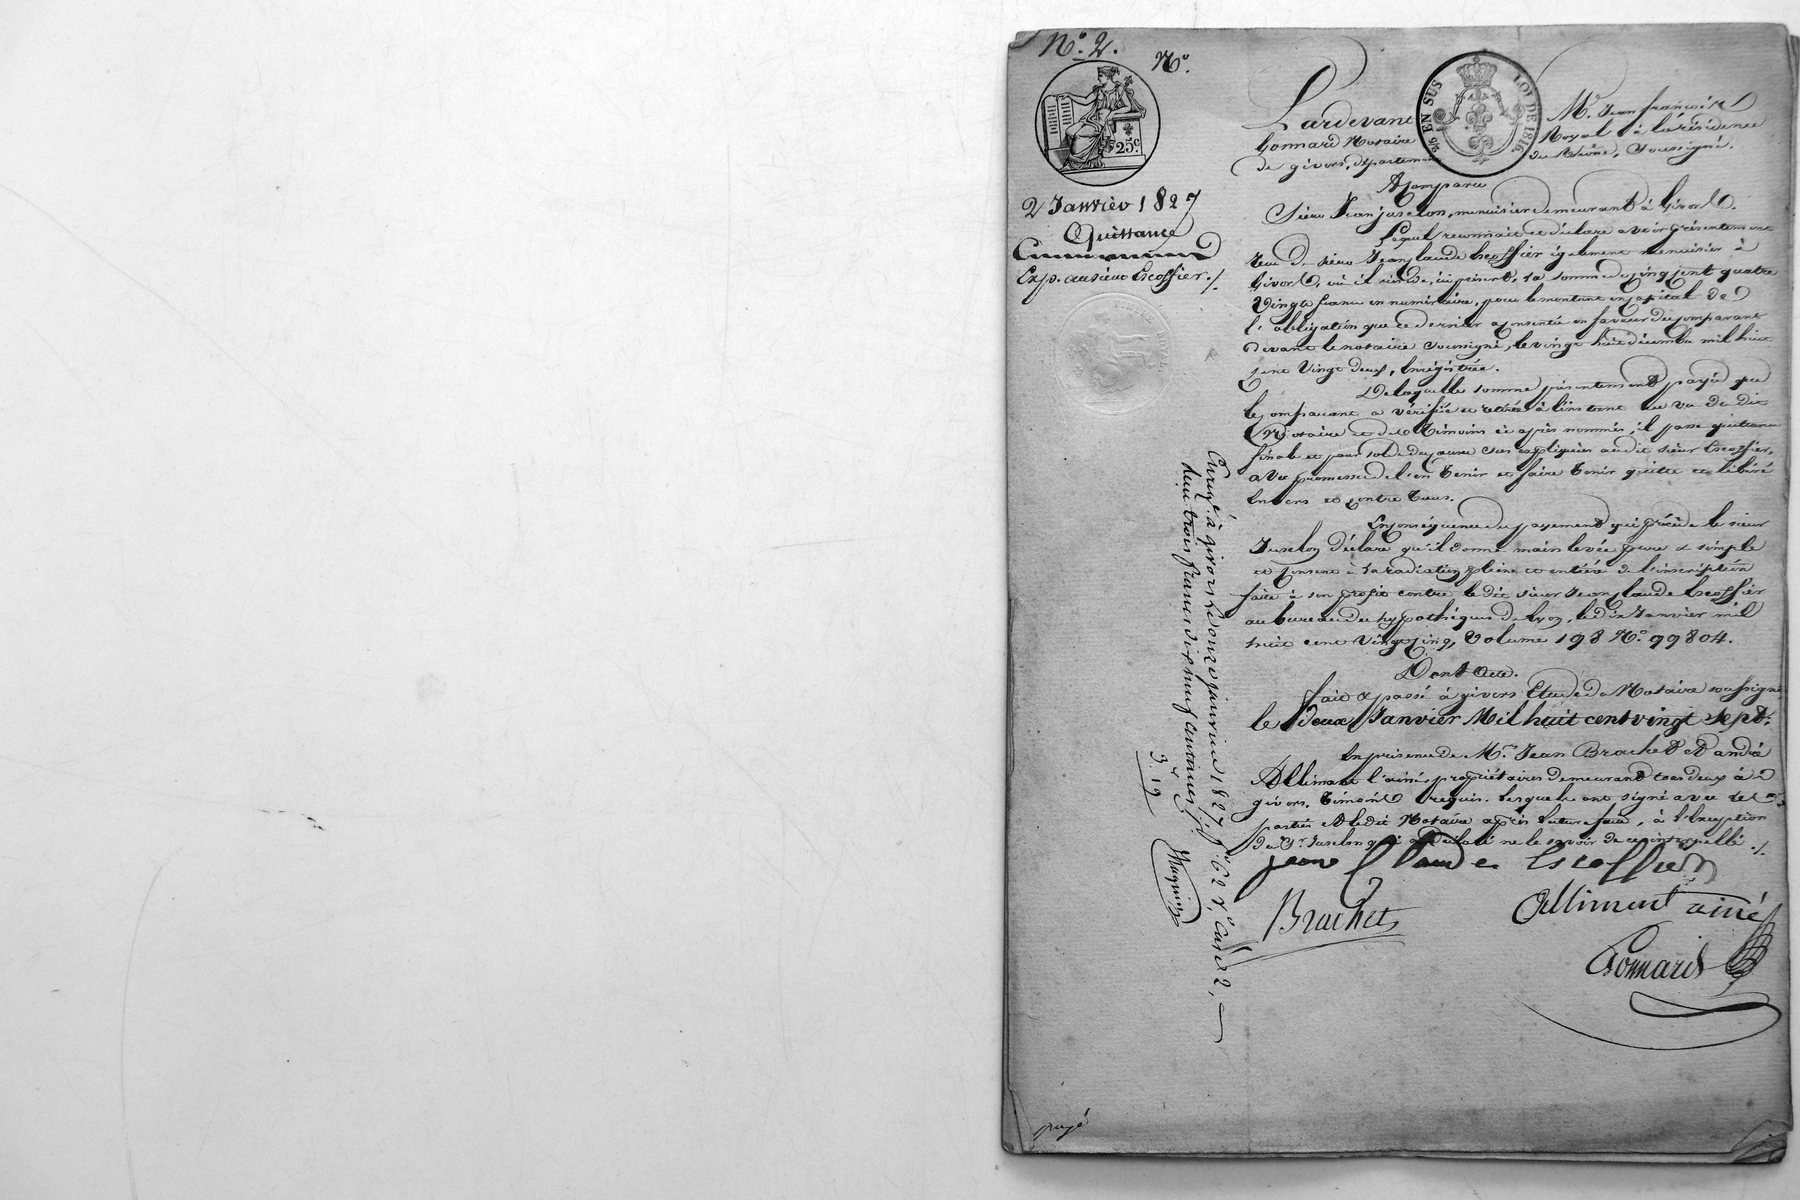 N.o 2.
N.o
25.c
2/5 EN SUS
LOI DE 1816
2 Janvier 1827
Quittance
Exp. au sieur Escoffier ./.
Pardevant M.e Jean françois
Gonnard Notaire Royal à la résidence
de givors, département du Rhône, Soussigné.
A Comparu
Sieur Jean juselon, menuisier demeurant à Givors.
Lequel reconnait et déclare avoir présentement
reçu de sieur Jean Claude Escoffier également menuisier à
Givors, où il réside, ici présent, la somme de cinq cent quatre
Vingts francs en numéraire, pour le montant en capital de
l'obligation que ce dernier a consentie en faveur du comparant
devant le notaire Soussigné, le vingt huit décembre mil huit
cent Vingt deux, Enrégistrée.
De laquelle somme présentement payée que
le comparant a vérifiée et retirée à l'instant au vu du dit
Notaire et des témoins ci après nommés, il passe quittance
finale et pour solde des causes sus expliquées audit sieur Escoffier,
avec promesse de l'en tenir et faire tenir quitte et libéré
Envers et contre tous.
En conséquence du payement qui précède le sieur
Juselon déclare qu'il donne main levée pure et simple
et consent à la radiation pleine et entière de l'inscription
faite à son profit contre le dit sieur Jean Claude Escoffier
au bureau des hypothèques de Lyon, le dix Janvier mil
huit cent Vingt cinq, Volume 198 N.o 99804.
Dont Acte.
fait & passé à givors Etude du Notaire soussigné
le deux Janvier Mil huit cent vingt sept.
En présence de M.rs Jean Brachet & andré
Alliment l'ainé, propriétaires demeurant tous deux à
givors, témoins requis. Lesquels ont signé avec les
parties & le dit Notaire après lecture faite, à l'exception
du S.r Juselon qui a déclaré ne le savoir de ce interpellé ./.
jean Claude Escoffier
Brachet
Alliment ainé
Gonnard
Enreg.é à givors le douze janvier 1827, f.o 62 r.o Case 2,
reçu trois francs dix neuf centimes
3 19
payé